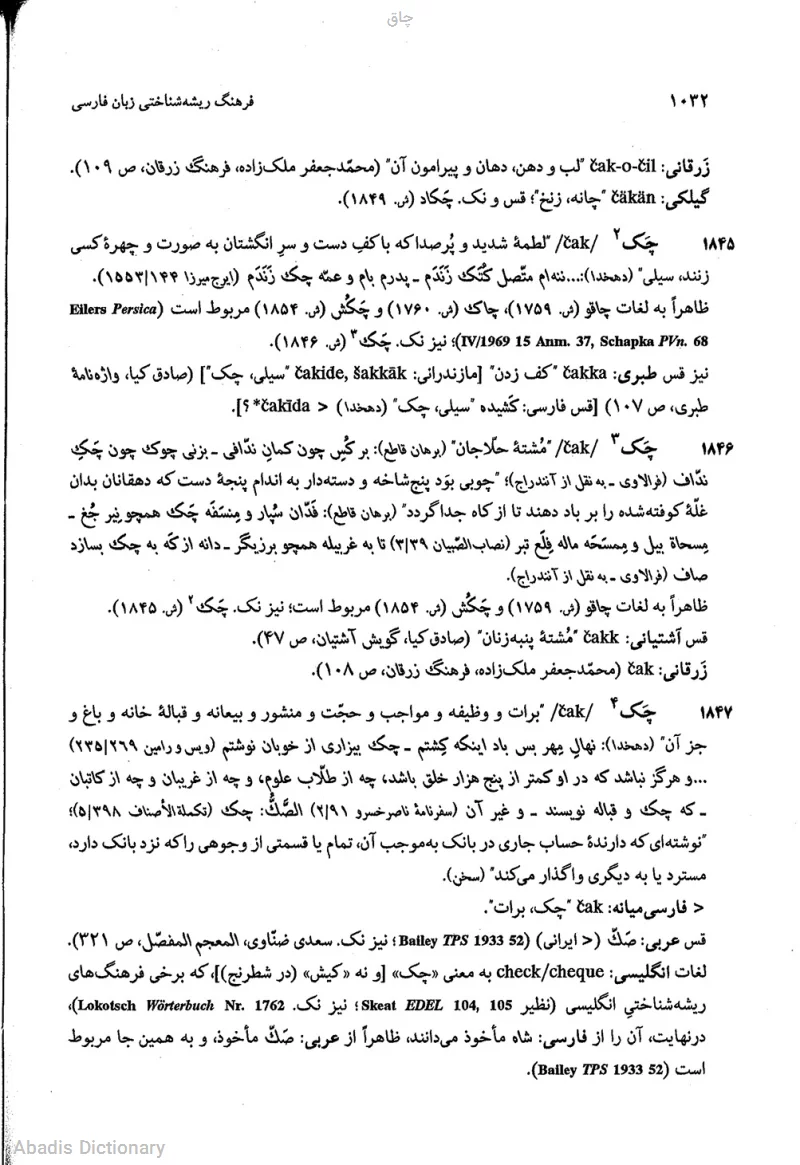 چاق
فرهنگ ریشه‌شناختی زبان فارسی
۱۰۳۲
زَرقانی: čak-o-čil "لب و دهن، دهان و پیرامون آن" (محمّدجعفر ملک‌زاده، فرهنگ زرقان، ص ۱۰۹).
گیلکی: čäkän "چانه، زنخ"؛ قس و نک. چَکاد (ش. ۱۸۴۹).
۱۸۴۵ چَک۲ /čak/ "لطمهٔ شدید و پُرصدا که با کفِ دست و سرِ انگشتان به صورت و چهرهٔ کسی
زنند، سیلی" (دهخدا): ...ننه‌ام متّصل کُتَک زَنَدَم ـ پدرم بام و عمّه چک زَنَدَم (ایرج‌میرزا ۱۵۵۳/۱۴۴).
ظاهراً به لغات چاقو (ش. ۱۷۵۹)، چاک (ش. ۱۷۶۰) و چَکُش (ش. ۱۸۵۴) مربوط است (Eilers Persica
IV/1969 15 Anm. 37, Schapka PVn. 68)؛ نیز نک. چَک۳ (ش. ۱۸۴۶).
نیز قس طبری: čakka "کف زدن" [مازندرانی: čakide, šakkāk "سیلی، چک"] (صادق کیا، واژه‌نامهٔ
طبری، ص ۱۰۷) [قس فارسی: کَشیده "سیلی، چک" (دهخدا) < čakīda* ؟].
۱۸۴۶ چَک۳ /čak/ "مُشتهٔ حلّاجان" (برهان قاطع): بر کُسِ چون کمانِ ندّافی ـ بزنی چوک چون چَکِ
ندّاف (فرالاوی ـ به نقل از آنندراج)؛ "چوبی بوَد پنج‌شاخه و دسته‌دار به اندام پنجهٔ دست که دهقانان بدان
غلّهٔ کوفته‌شده را بر باد دهند تا از کاه جدا گردد" (برهان قاطع): فَدّان سُپار و مِنسَفَه چَک همچو نیر جُغ ـ
مِسحاة بیل و مِمسَحَه ماله فِلَع تبر (نصاب‌الصّبیان ۳/۳۹) تا به غربیله همچو برزیگر ـ دانه از کَه به چک بسازد
صاف (فرالاوی ـ به نقل از آنندراج).
ظاهراً به لغات چاقو (ش. ۱۷۵۹) و چَکُش (ش. ۱۸۵۴) مربوط است؛ نیز نک. چَک۲ (ش. ۱۸۴۵).
قس آشتیانی: čakk "مُشتهٔ پنبه‌زنان" (صادق کیا، گویش آشتیان، ص ۴۷).
زَرقانی: čak (محمّدجعفر ملک‌زاده، فرهنگ زرقان، ص ۱۰۸).
۱۸۴۷ چَک۴ /čak/ "برات و وظیفه و مواجب و حجّت و منشور و بیعانه و قبالهٔ خانه و باغ و
جز آن" (دهخدا): نهالِ مِهر بس باد اینکه کِشتم ـ چکِ بیزاری از خوبان نوشتم (ویس و رامین ۲۳۵/۲۶۹)
...و هرگز نباشد که در او کمتر از پنج هزار خلق باشد، چه از طلّاب علوم، و چه از غریبان و چه از کاتبان
ـ که چک و قباله نویسند ـ و غیر آن (سفرنامهٔ ناصرخسرو ۲/۹۱) الصَّکُّ: چک (تکملةالأصناف ۵/۳۹۸)؛
"نوشته‌ای که دارندهٔ حساب جاری در بانک به‌موجب آن، تمام یا قسمتی از وجوهی را که نزد بانک دارد،
مسترد یا به دیگری واگذار می‌کند" (سخن).
< فارسی‌میانه: čak "چک، برات".
قس عربی: صَکّ (< ایرانی) (Bailey TPS 1933 52؛ نیز نک. سعدی ضنّاوی، المعجم المفصّل، ص ۳۲۱).
لغات انگلیسی: check/cheque به معنی «چک» [و نه «کیش» (در شطرنج)]، که برخی فرهنگ‌های
ریشه‌شناختیِ انگلیسی (نظیر Skeat EDEL 104, 105؛ نیز نک. Lokotsch Wörterbuch Nr. 1762)،
درنهایت، آن را از فارسی: شاه مأخوذ می‌دانند، ظاهراً از عربی: صَکّ مأخوذ، و به همین جا مربوط
است (Bailey TPS 1933 52).
Abadis Dictionary